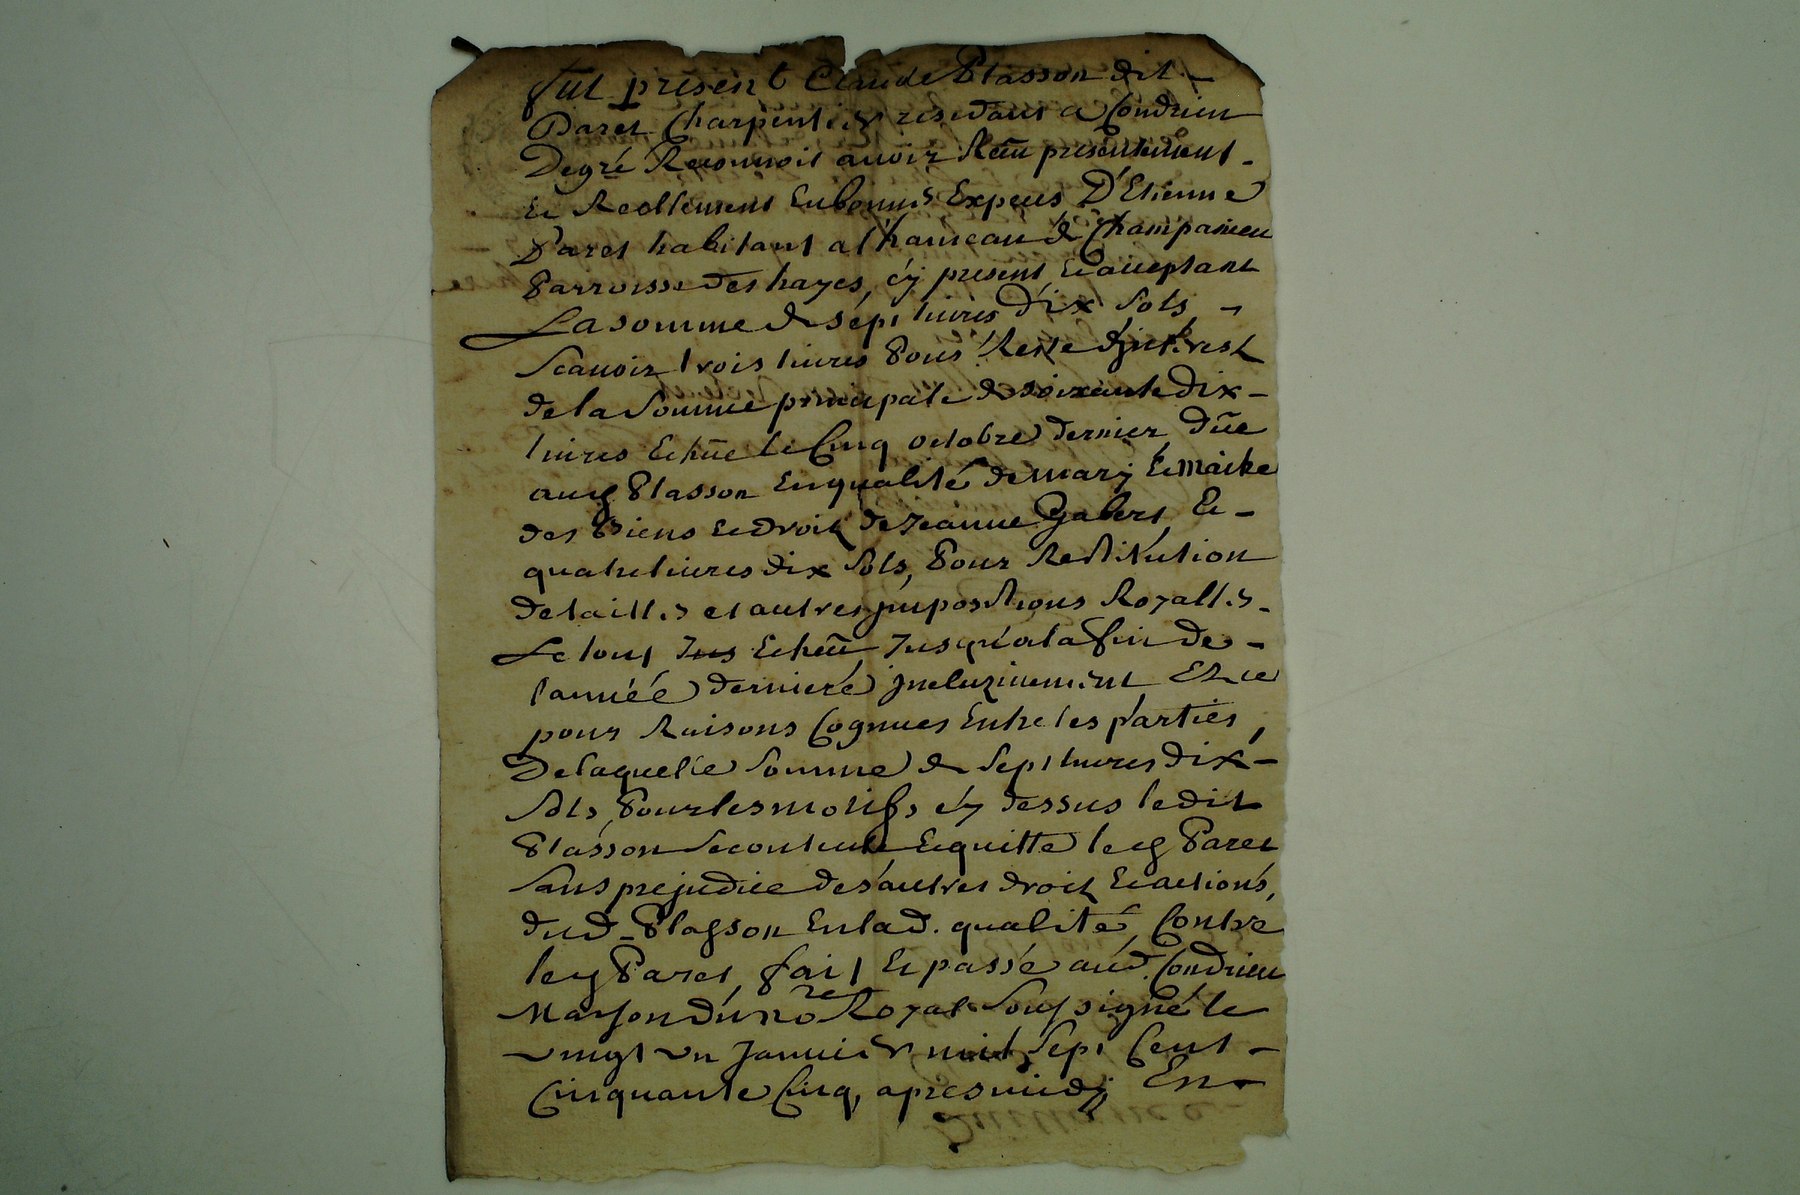 fut present Claude Plasson dit -
Paret Charpentier residant a Condrieu
Degré Reconnoit avoir Receu presentement -
Et Reellement En bonnes Especes D'Etienne
Paret habitant al hameau de Champanieu
Parroisse des hayes, cy present Et acceptant
La somme de sept livres Dix Sols, -
Scavoir trois livres Pour Reste d'jnterest
de la Somme principale de soixante Dix -
livres Echûe le Cinq octobre dernier dûe
aud Plasson En qualité de mary Et maitre
des Biens Et droit de Jeanne Gabert, Et -
quatre livres dix Sols, Pour Restitution
de tailles et autres jmpositions Royalles -
Le tout Jus Echeu Jusqu'a la fin de -
l'année derniere jncluzivement Et ce
pour Raisons Cognues Entre les parties,
De laquelle Somme de Sept livres dix -
Sols, Pour les motifs cy dessus ledit
Plasson Se contente Et quitte led Paret
Sans prejudice des autres droit Et actions,
dud. Plasson En lad. qualité, Contre
led Paret, fait Et passé aud. Condrieu
Maison du no.re Royal Soussigné le
vingt un Janvier mil Sept Cent -
Cinquante Cinq, apres midy En -